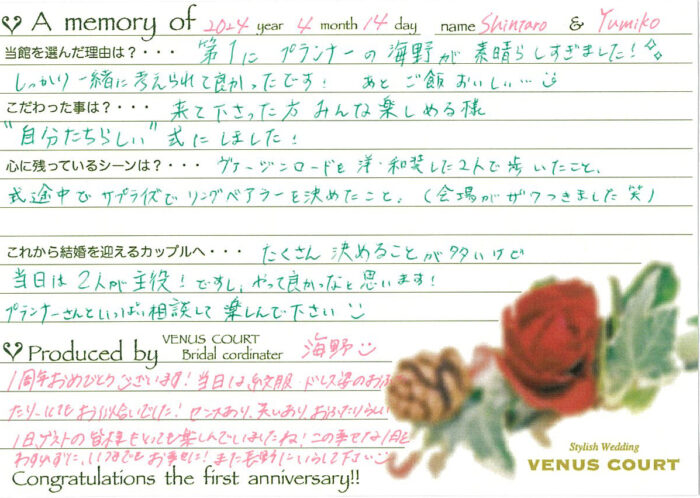 A memory of 2024 year 4 month 14 day name Shintaro & Yumiko
当館を選んだ理由は？・・・ 第1に プランナーの海野が 素晴らしすぎました！
しっかり一緒に考えられて良かったです！ あと ご飯おいしい…
こだわった事は？・・・ 来て下さった方 みんな楽しめる様
"自分たちらしい" 式にしました！
心に残っているシーンは？・・・ ヴァージンロードを 洋・和装した2人で歩いたこと、
式途中で サプライズで リングベアラーを決めたこと。(会場がザワつきました 笑)
これから結婚を迎えるカップルへ・・・ たくさん 決めることが多いけど
当日は 2人が主役！ですし、やって良かったなと思います！
プランナーさんといっぱい相談して 楽しんで下さい
Produced by VENUS COURT Bridal cordinater 海野
1周年おめでとうございます！当日は紋服・ドレス姿のおふ
たり…とてもお似合いでした！センスあり、笑いあり、おふたりらしい
1日、ゲストの皆様もとっても楽しんでいましたね！この幸せな1日を
わすれずに、いつまでもお幸せに！また長野にいらして下さい
Congratulations the first anniversary!!
Stylish Wedding
VENUS COURT